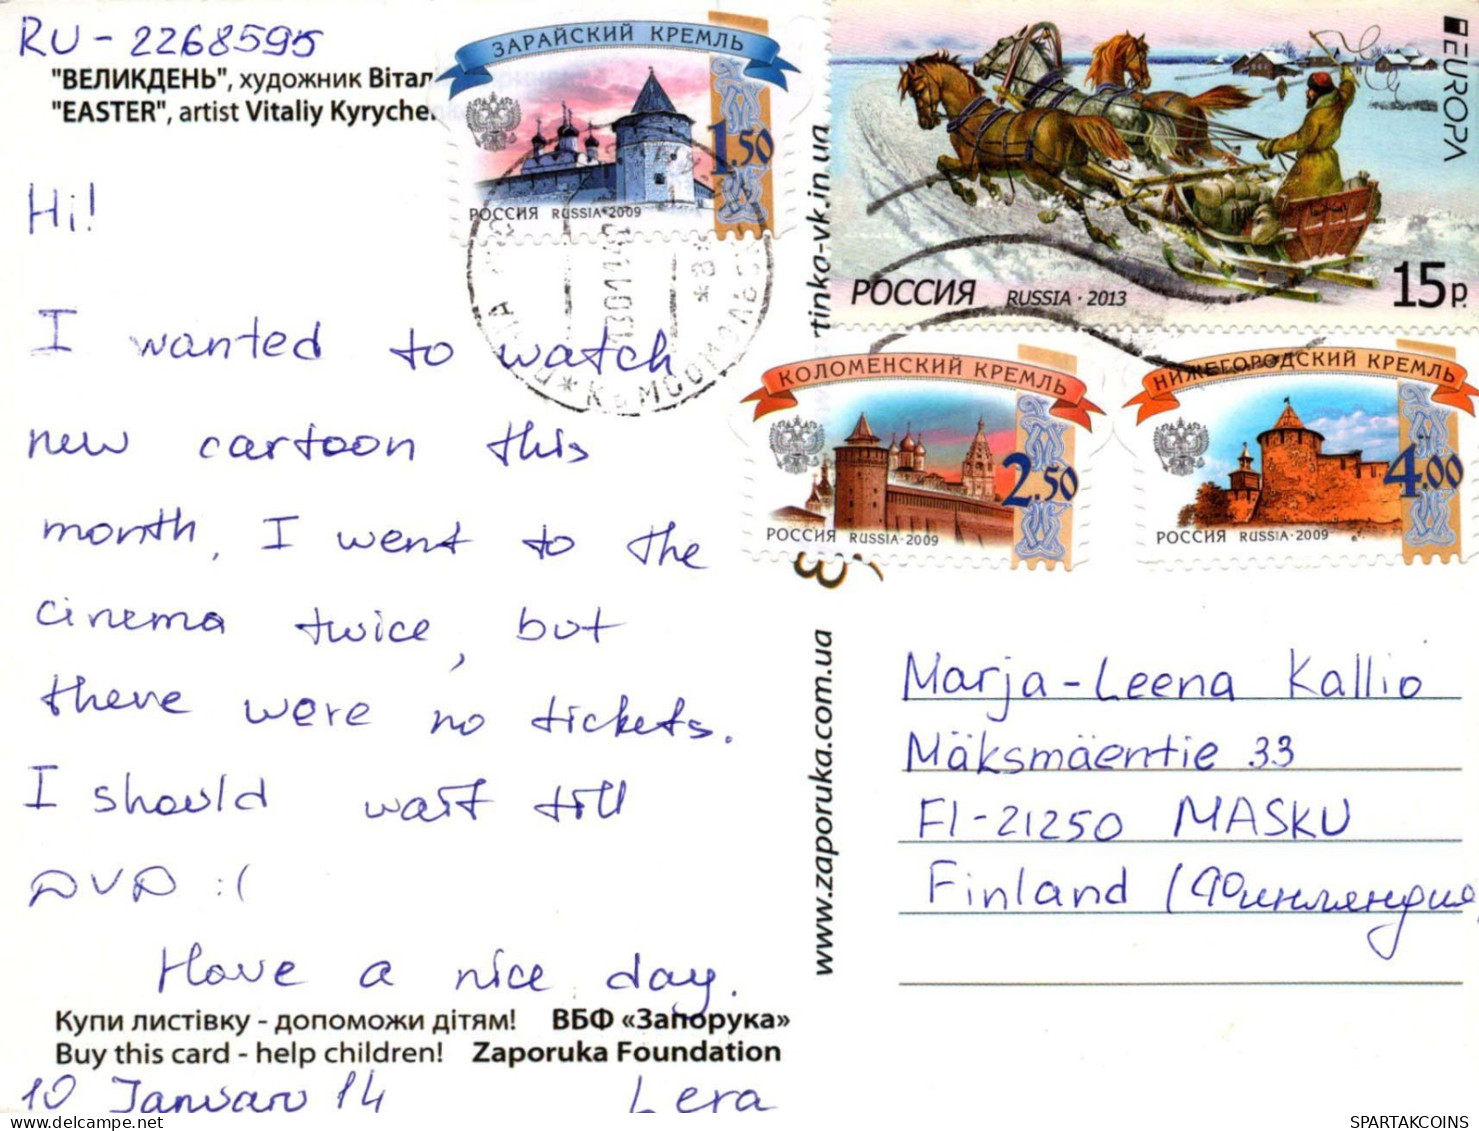 RU-2268595
"ВЕЛИКДЕНЬ", художник Вітал
"EASTER", artist Vitaliy Kyryche
ЗАРАЙСКИЙ КРЕМЛЬ
1.50
РОССИЯ RUSSIA·2009
EUROPA
РОССИЯ RUSSIA · 2013
15р.
КОЛОМЕНСКИЙ КРЕМЛЬ
2.50
РОССИЯ RUSSIA·2009
НИЖЕГОРОДСКИЙ КРЕМЛЬ
4.00
РОССИЯ RUSSIA·2009
Hi!
I wanted to watch
new cartoon this
month. I went to the
cinema twice, but
there were no tickets.
I should wait till
DVD :(
Have a nice day.
Купи листівку - допоможи дітям! ВБФ «Запорука»
Buy this card - help children! Zaporuka Foundation
10 Januaru 14 Lera
tinka-vk.in.ua
www.zaporuka.com.ua
Marja-Leena Kallio
Mäksmäentie 33
FI-21250 MASKU
Finland (Финляндия
SPARTAKCOINS